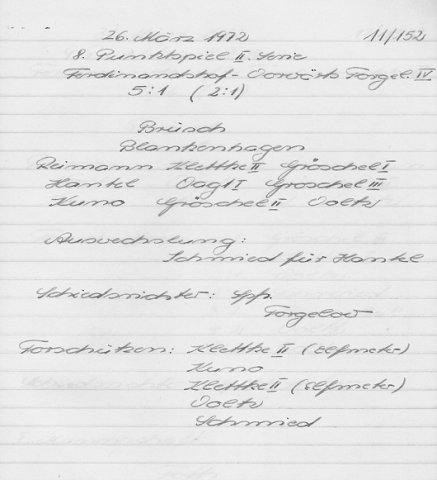 26. März 1972 11/152
8. Punktspiel II. Serie
Ferdinandshof - Vorwärts Torgel. IV
5:1 (2:1)
Brüsch
Blankenhagen
Reimann Klettke II Gröschel I
Hankel Vogt I Gröschel III
Kuno Gröschel II Voltz
Auswechslung:
Schmied für Hankel
Schiedsrichter: Spfr.
Torgelow
Torschützen: Klettke II (Elfmeter)
Kuno
Klettke II (Elfmeter)
Voltz
Schmied